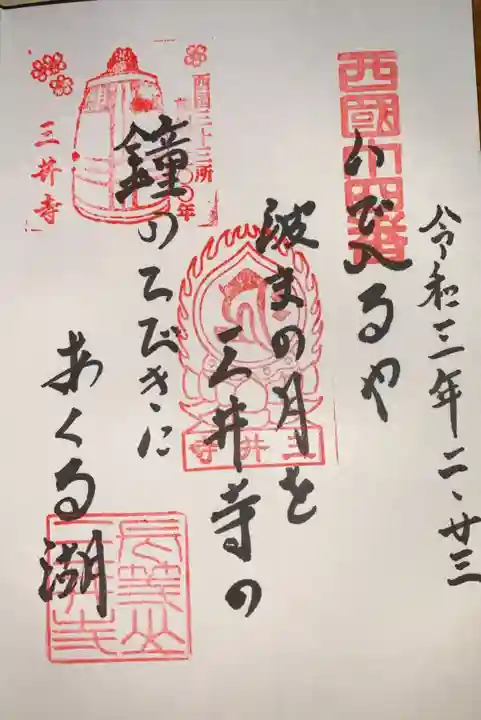 令和三年二、廿三
西國十四番
いで入るや
波まの月を
三井寺の
鐘のひびきに
あくる湖
三井寺
西国三十三所
三井寺
長等山
三井寺